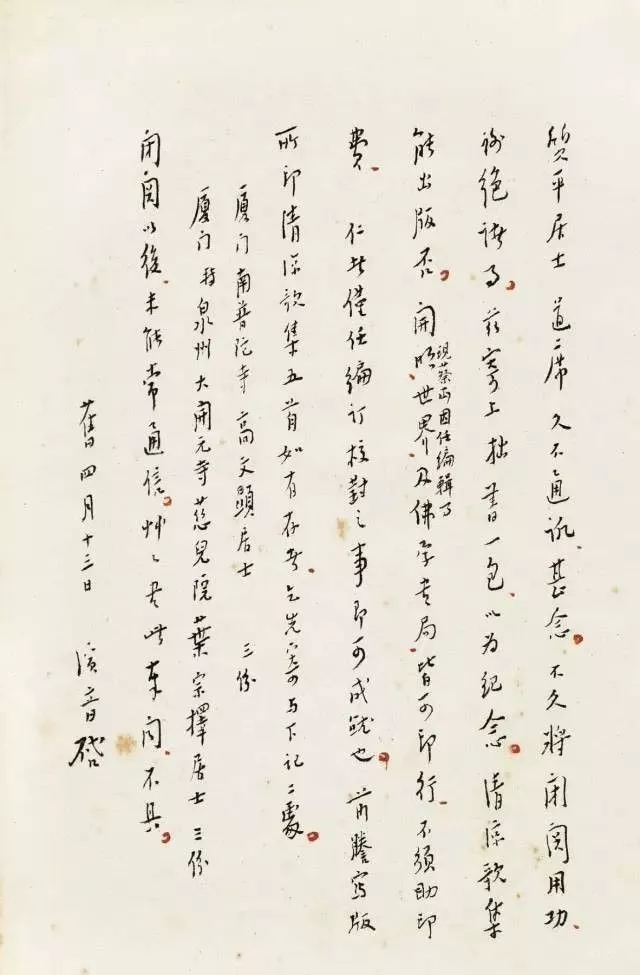 質平居士道席久不通訊甚念不久將閉関用功
謝絕諸事玆寄上拙書一包以为紀念清凉歌集
能出版否開明世界及佛学書局皆可印行不須助印
現蔡丏因任編輯事
費 仁者僅任編訂校對之事即可成就也 前謄寫版
所印清凉歌集五首如有存者乞先寄与下记二處
厦门南普陀寺高文顕居士 三份
厦门轉泉州大開元寺慈兒院葉宗擇居士三份
閉関以後未能常通信草々奉達不具
舊四月十三日 演音啓